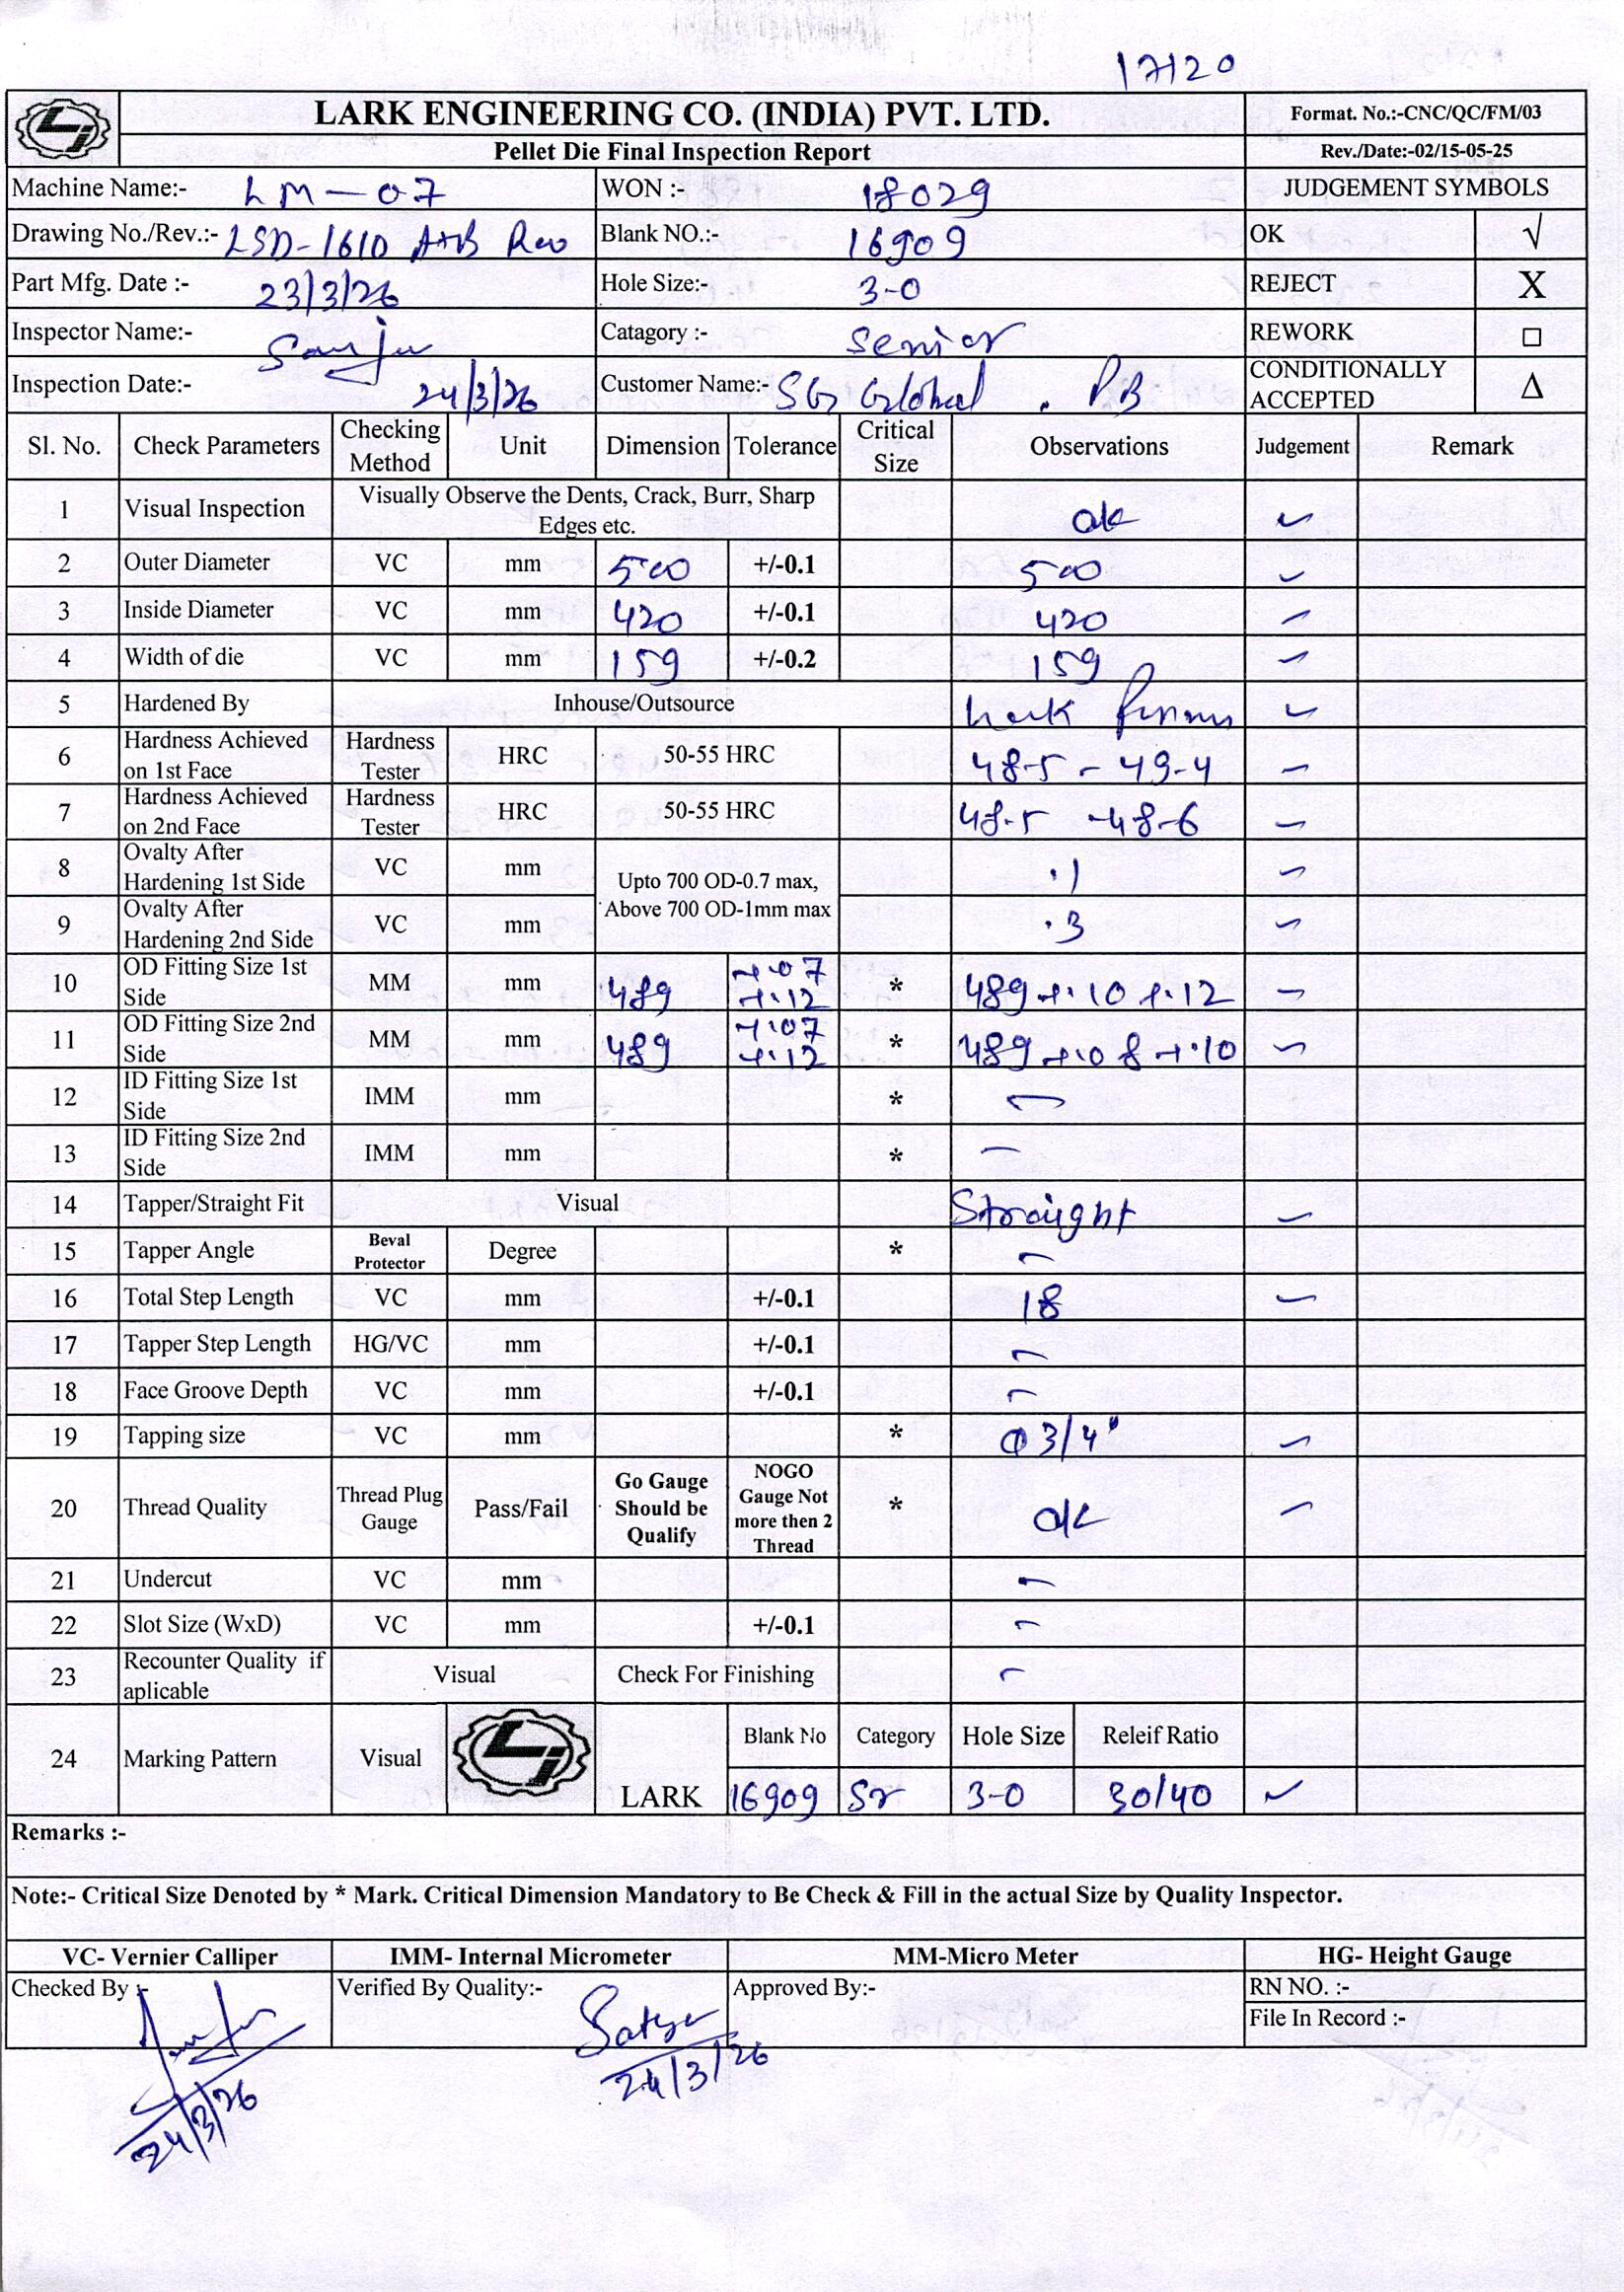 17120
LARK ENGINEERING CO. (INDIA) PVT. LTD.
Format. No.:-CNC/QC/FM/03
Pellet Die Final Inspection Report
Rev./Date:-02/15-05-25
Machine Name:- LM-07 WON :- 18029 JUDGEMENT SYMBOLS
Drawing No./Rev.:- LSD-1610 A+B Rev Blank NO.:- 16909 OK √
Part Mfg. Date :- 23/3/26 Hole Size:- 3-0 REJECT X
Inspector Name:- Sanju Catagory :- Senior REWORK □
Inspection Date:- 24/3/26 Customer Name:- SG Global . PB CONDITIONALLY ACCEPTED Δ
Sl. No. Check Parameters Checking Method Unit Dimension Tolerance Critical Size Observations Judgement Remark
1 Visual Inspection Visually Observe the Dents, Crack, Burr, Sharp Edges etc. ok ✓
2 Outer Diameter VC mm 500 +/-0.1 500 ✓
3 Inside Diameter VC mm 420 +/-0.1 420 ✓
4 Width of die VC mm 159 +/-0.2 159 ✓
5 Hardened By Inhouse/Outsource Lark ✓
6 Hardness Achieved on 1st Face Hardness Tester HRC 50-55 HRC 48-5 - 49-4 ✓
7 Hardness Achieved on 2nd Face Hardness Tester HRC 50-55 HRC 48-5 -48-6 ✓
8 Ovalty After Hardening 1st Side VC mm Upto 700 OD-0.7 max, Above 700 OD-1mm max .1 ✓
9 Ovalty After Hardening 2nd Side VC mm .3 ✓
10 OD Fitting Size 1st Side MM mm 489 +.07 +.12 * 489 +.10 +.12 ✓
11 OD Fitting Size 2nd Side MM mm 489 +.07 +.12 * 489 +.08 +.10 ✓
12 ID Fitting Size 1st Side IMM mm * -
13 ID Fitting Size 2nd Side IMM mm * -
14 Tapper/Straight Fit Visual Straight ✓
15 Tapper Angle Beval Protector Degree * -
16 Total Step Length VC mm +/-0.1 18 ✓
17 Tapper Step Length HG/VC mm +/-0.1 -
18 Face Groove Depth VC mm +/-0.1 -
19 Tapping size VC mm * Φ 3/4" ✓
20 Thread Quality Thread Plug Gauge Pass/Fail Go Gauge Should be Qualify NOGO Gauge Not more then 2 Thread * ok ✓
21 Undercut VC mm -
22 Slot Size (WxD) VC mm +/-0.1 -
23 Recounter Quality if aplicable Visual Check For Finishing -
24 Marking Pattern Visual LARK Blank No Category Hole Size Releif Ratio
16909 Sr 3-0 30/40 ✓
Remarks :-
Note:- Critical Size Denoted by * Mark. Critical Dimension Mandatory to Be Check & Fill in the actual Size by Quality Inspector.
VC- Vernier Calliper IMM- Internal Micrometer MM-Micro Meter HG- Height Gauge
Checked By :- Verified By Quality:- Satya Approved By:- RN NO. :-
File In Record :-
24/3/26 24/3/26